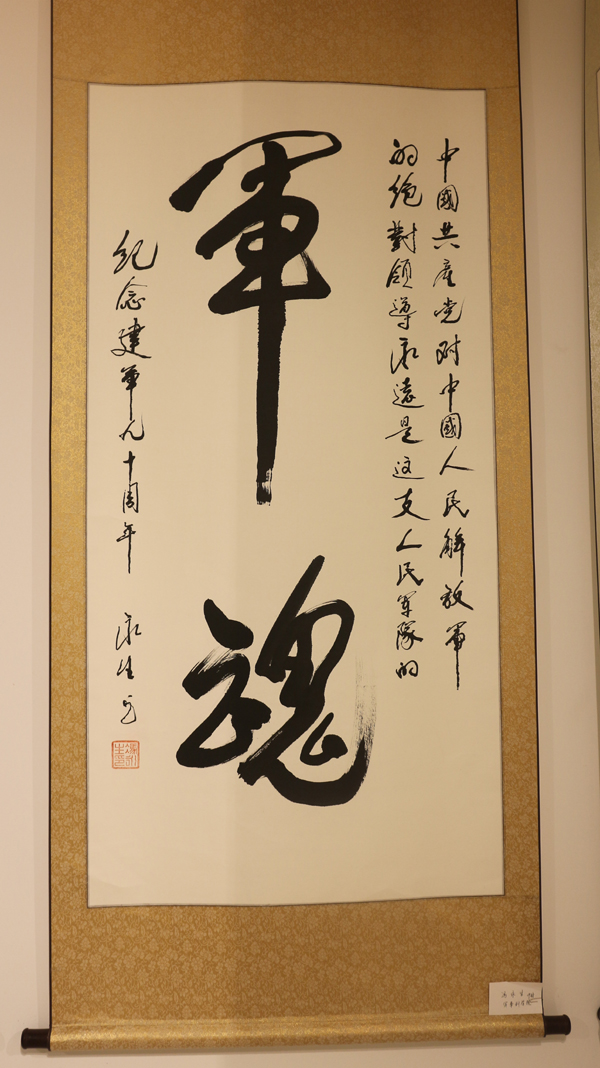 中國共產党对中國人民解放軍
的绝對領導永遠是这支人民军隊的
軍魂
纪念建军九十周年 永生书